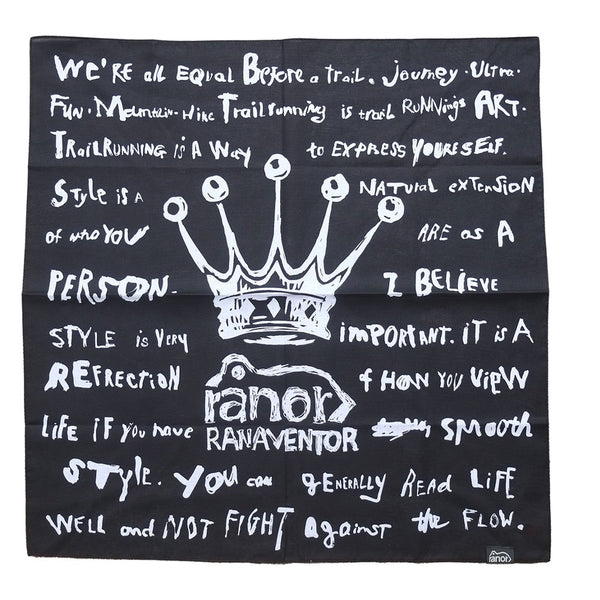 WE'RE all EQUAL Before a trail. Journey. Ultra.
FUN. Mountain. Hike Trail running is trail RUNNINgs ART.
TRAILRUNNING is A Way to EXPRESS YOURESELF.
Style is A NATURAL exTENSiON
of who YOU ARE as A
PERSON. I BELIEVE
STYLE is VERY iMPORTANT. iT iS A
REFRECTiON f HOW YOU ViEW
LiFE iF you have smooth
STYLE. YOU can gENERALLY READ LiFE
WELL and NOT FIGHT AgAinst the FLOW.
ranor
RANAVENTOR
ranor